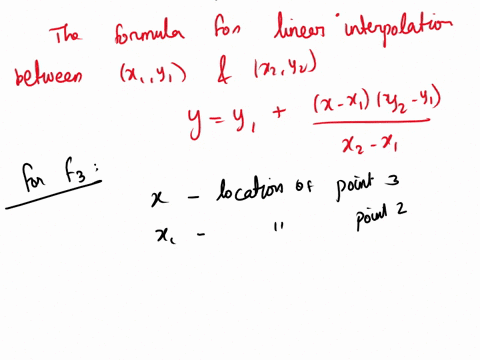 The formula for linear interpolation
between (x₁, y₁) & (x₂, y₂)
y = y₁ + (x - x₁) (y₂ - y₁) / x₂ - x₁
for f₃:
x - location of point 3
x₁ - " point 2